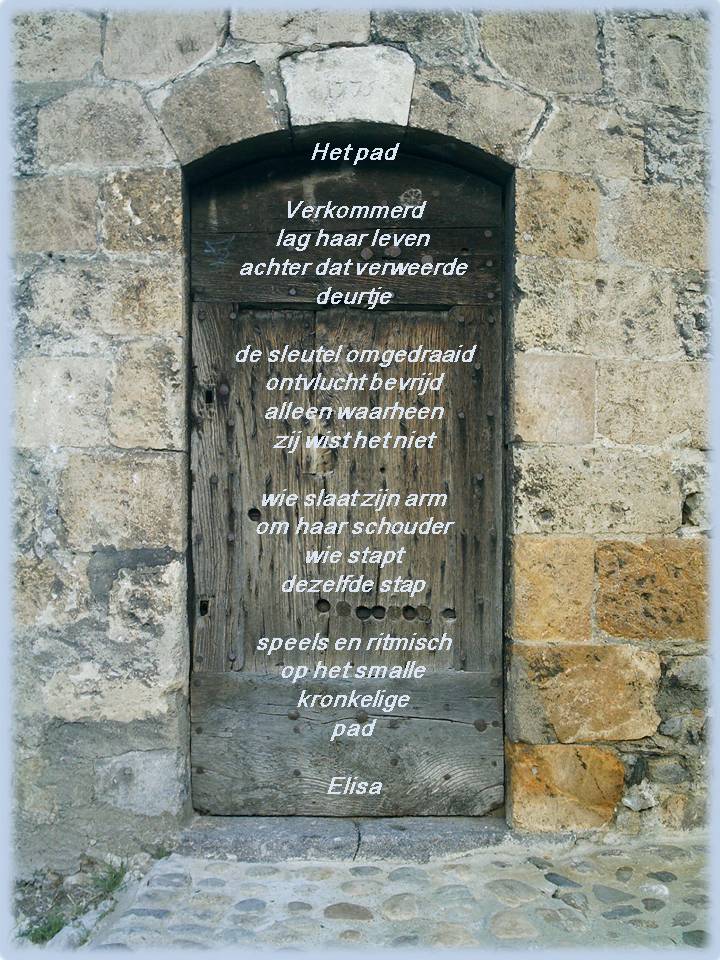 1773
Het pad
Verkommerd
lag haar leven
achter dat verweerde
deurtje
de sleutel omgedraaid
ontvlucht bevrijd
alleen waarheen
zij wist het niet
wie slaat zijn arm
om haar schouder
wie stapt
dezelfde stap
speels en ritmisch
op het smalle
kronkelige
pad
Elisa